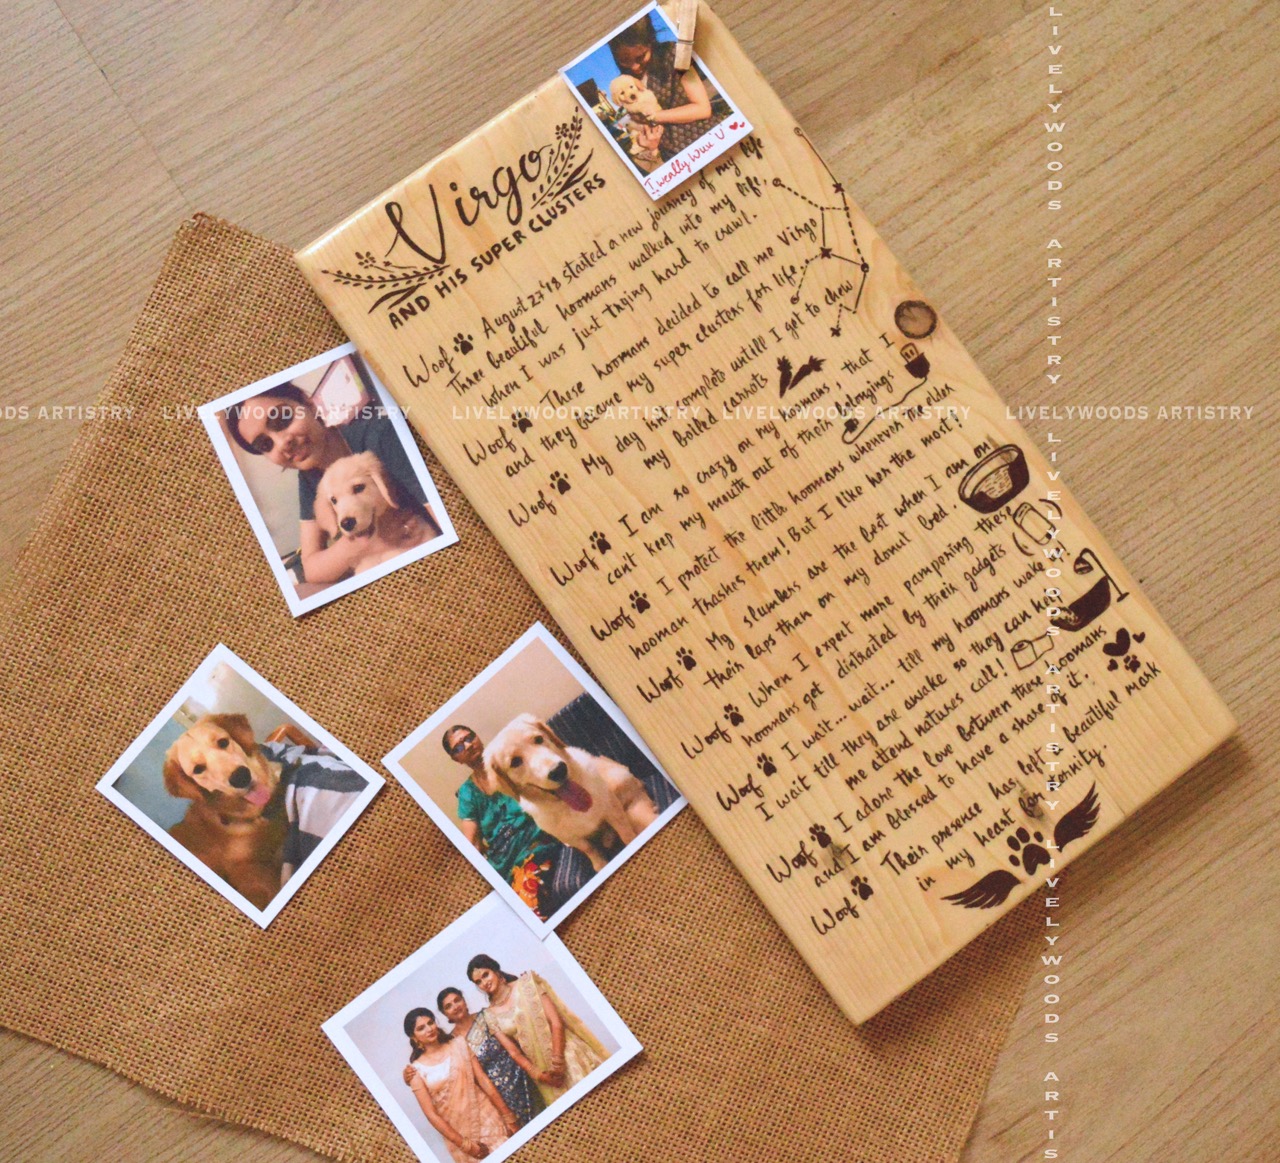 Virgo
AND HIS SUPER CLUSTERS
I weally wuu 'U'
Woof August 27'18 started a new journey of my life
Three beautiful hoomans walked into my life,
when I was just trying hard to crawl.
Woof These hoomans decided to call me Virgo
and they became my super clusters for life.
Woof My day isn't complete untill I get to chew
my boiled carrots
Woof I am so crazy on my hoomans, that I
can't keep my mouth out of their belongings
Woof I protect the little hoomans whenever the elder
hooman thrashes them! But I like her the most!
Woof My slumbers are the best when I am on
their laps than on my donut bed.
Woof When I expect more pampering these
hoomans get distracted by their gadgets
Woof I wait... wait... till my hoomans wake up!
I wait till they are awake so they can help
me attend natures call!
Woof I adore the love between these hoomans
and I am blessed to have a share of it.
Woof Their presence has left a beautiful mark
in my heart for eternity.
LIVELYWOODS ARTISTRY LIVELYWOODS ARTISTRY LIVELYWOODS ARTISTRY LIVELYWOODS ARTISTRY
LIVELYWOODS ARTISTRY LIVELYWOODS ARTISTRY LIVELYWOODS ARTIS